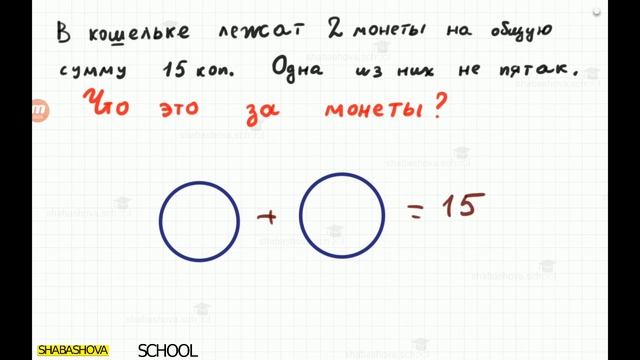 В кошельке лежат 2 монеты на общую
сумму 15 коп. Одна из них не пятак.
Что это за монеты?
+ = 15
SHABASHOVA SCHOOL